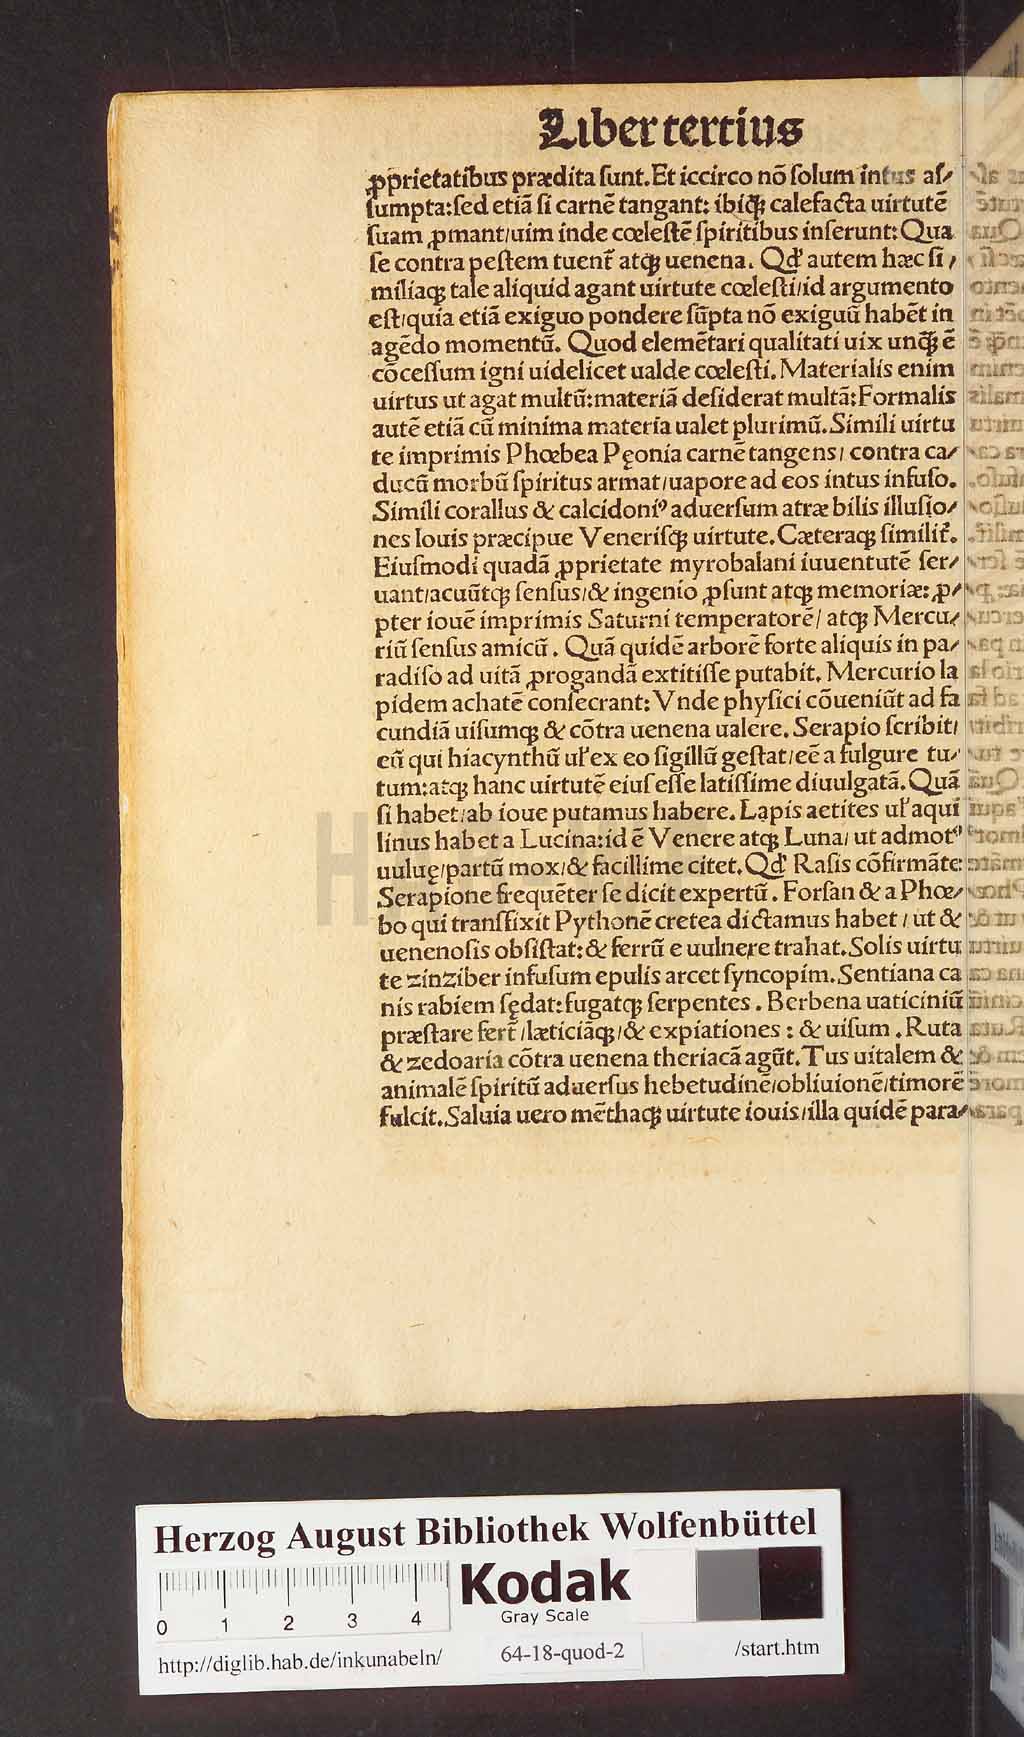 Liber tertius
ꝓprietatibus prædita ſunt. Et iccirco nō ſolum intus aſ⸗
ſumpta: ſed etiā ſi carnē tangant: ibiqꝫ calefacta uirtutē
ſuam ꝓmant/uim inde cœleſtē ſpiritibus inferunt: Qua
ſe contra peſtem tuent̃ atqꝫ uenena. Qď autem hæc ſi/
miliaqꝫ tale aliquid agant uirtute cœleſti/id argumento
eſt/quia etiā exiguo pondere ſūpta nō exiguū habēt in
agēdo momentū. Quod elemētari qualitati uix unqꝫ̄ ē
cōceſſum igni uidelicet ualde cœleſti. Materialis enim
uirtus ut agat multū: materiā deſiderat multā: Formalis
autē etiā cū minima materia ualet plurimū. Simili uirtu
te imprimis Phœbea Pęonia carnē tangens/ contra ca⸗
ducū morbū ſpiritus armat/uapore ad eos intus infuſo.
Simili corallus & calcidoniꝰ aduerſum atræ bilis illuſio⸗
nes Iouis præcipue Veneriſqꝫ uirtute. Cæteraqꝫ ſimilit̃.
Eiuſmodi quadā ꝓprietate myrobalani iuuentutē ſer⸗
uant/acuūtqꝫ ſenſus/& ingenio ꝓſunt atqꝫ memoriæ: ꝓ⸗
pter iouē imprimis Saturni temperatorē/ atqꝫ Mercu⸗
riū ſenſus amicū. Quā quidē arborē forte aliquis in pa⸗
radiſo ad uitā ꝓrogandā extitiſſe putabit. Mercurio la
pidem achatē conſecrant: Vnde phyſici cōueniūt ad fa
cundiā uiſumqꝫ & cōtra uenena ualere. Serapio ſcribit/
eū qui hiacynthū uľ ex eo ſigillū geſtat/eē a fulgure tu⸗
tum: atqꝫ hanc uirtutē eiuſ eſſe latiſſime diuulgatā. Quā
ſi habet/ab ioue putamus habere. Lapis aetites uľ aqui
linus habet a Lucina: id ē Venere atqꝫ Luna/ ut admotꝰ
uuluę/partū mox/& facillime citet. Qď Raſis cōfirmāte
Serapione frequēter ſe dicit expertū. Forſan & a Phœ⸗
bo qui tranſfixit Pythonē cretea dictamus habet/ ut &
uenenoſis obſiſtat: & ferrū e uulnere trahat. Solis uirtu
te zinziber infuſum epulis arcet ſyncopim. Sentiana ca
nis rabiem ſędat: fugatqꝫ ſerpentes. Berbena uaticiniū
præſtare fert̃/læticiāqꝫ/& expiationes: & uiſum. Ruta
& zedoaria cōtra uenena theriacā agūt. Tus uitalem &
animalē ſpiritū aduerſus hebetudinē/obliuionē/timorē
fulcit. Saluia uero mēthaqꝫ uirtute iouis/illa quidē para⸗
Herzog August Bibliothek Wolfenbüttel
Kodak
Gray Scale
0 1 2 3 4
http://diglib.hab.de/inkunabeln/ 64-18-quod-2 /start.htm